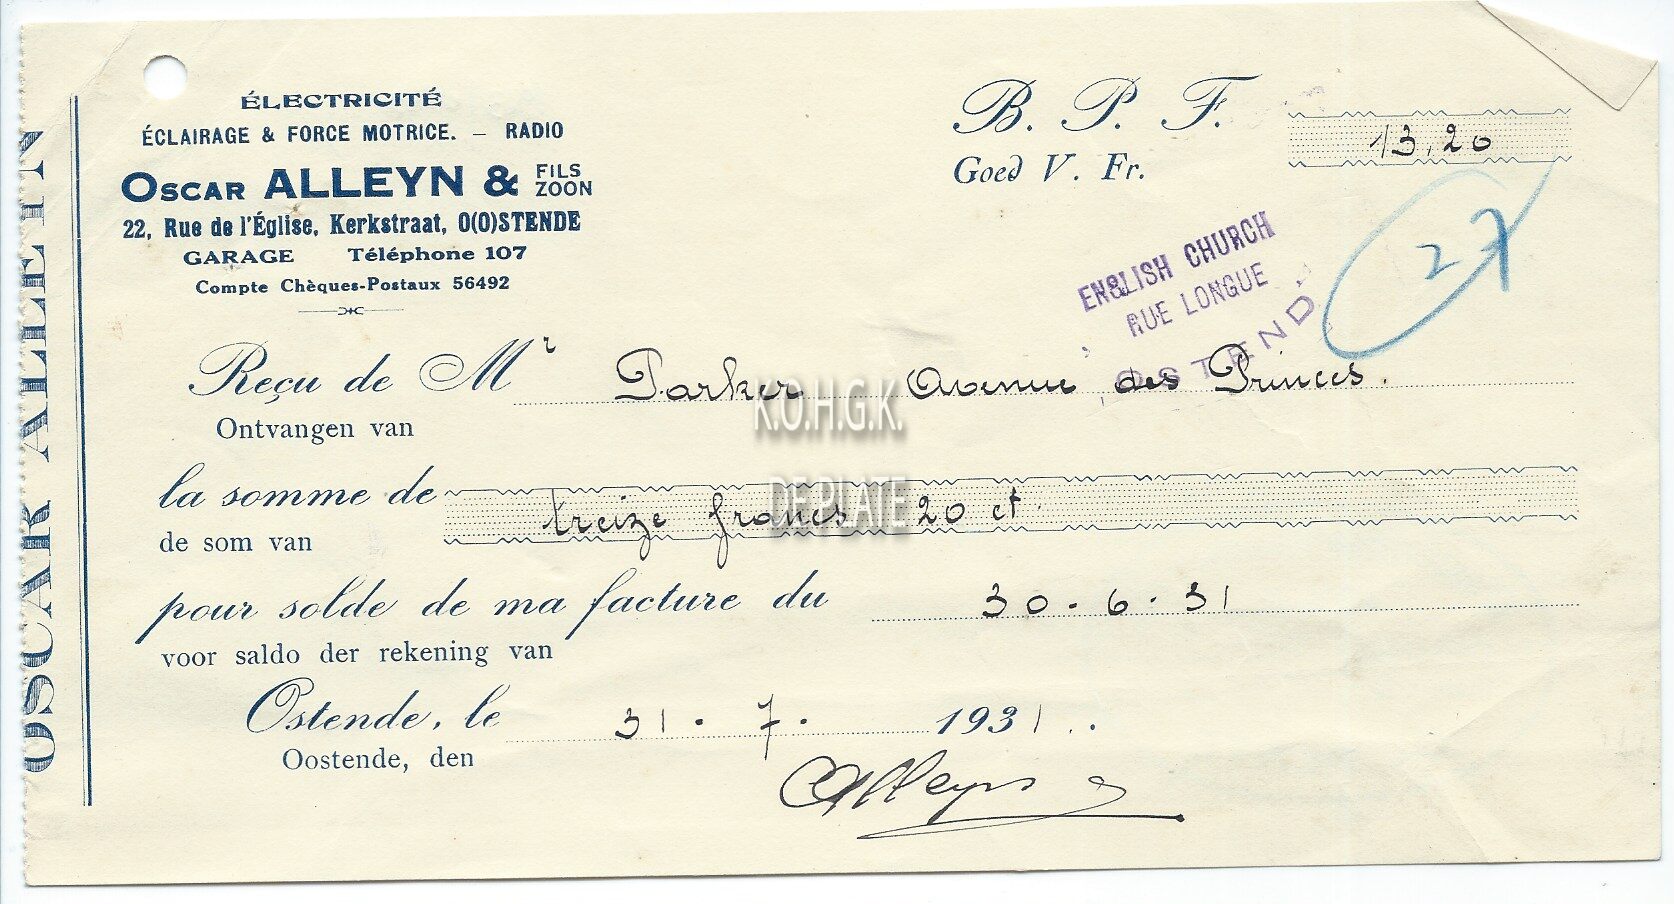 OSCAR ALLEYN
ÉLECTRICITÉ
ÉCLAIRAGE & FORCE MOTRICE. — RADIO
OSCAR ALLEYN & FILS ZOON
22, Rue de l'Église, Kerkstraat, O(O)STENDE
GARAGE Téléphone 107
Compte Chèques-Postaux 56492
B. P. F. 13,20
Goed V. Fr.
ENGLISH CHURCH
RUE LONGUE
OSTEND
27
Reçu de Mr Parker Avenue des Princes.
Ontvangen van
K.O.H.G.K.
la somme de treize francs 20 ct.
DE PLATE
de som van
pour solde de ma facture du 30-6-31
voor saldo der rekening van
Ostende, le 31.7. 1931..
Oostende, den
OAlleyn